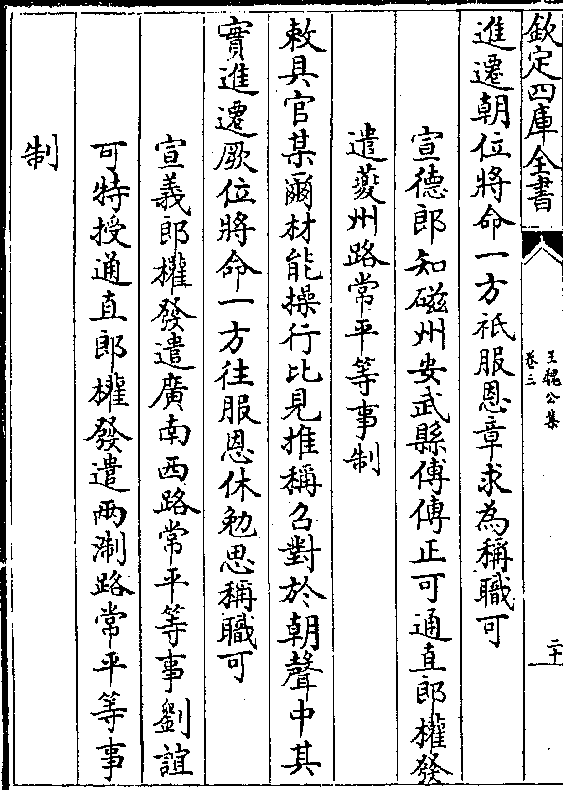 欽定四庫全書
王魏公集
卷三
二十
進遷朝位將命一方祗服恩章求為稱職可
宣德郎知磁州安武縣傅傳正可通直郎權發
遣夔州路常平等事制
敕具官某爾材能操行比見推稱召對於朝聲中其
實進遷厥位將命一方往服恩休勉思稱職可
宣義郎權發遣廣南西路常平等事劉誼
可特授通直郎權發遣兩浙路常平等事
制